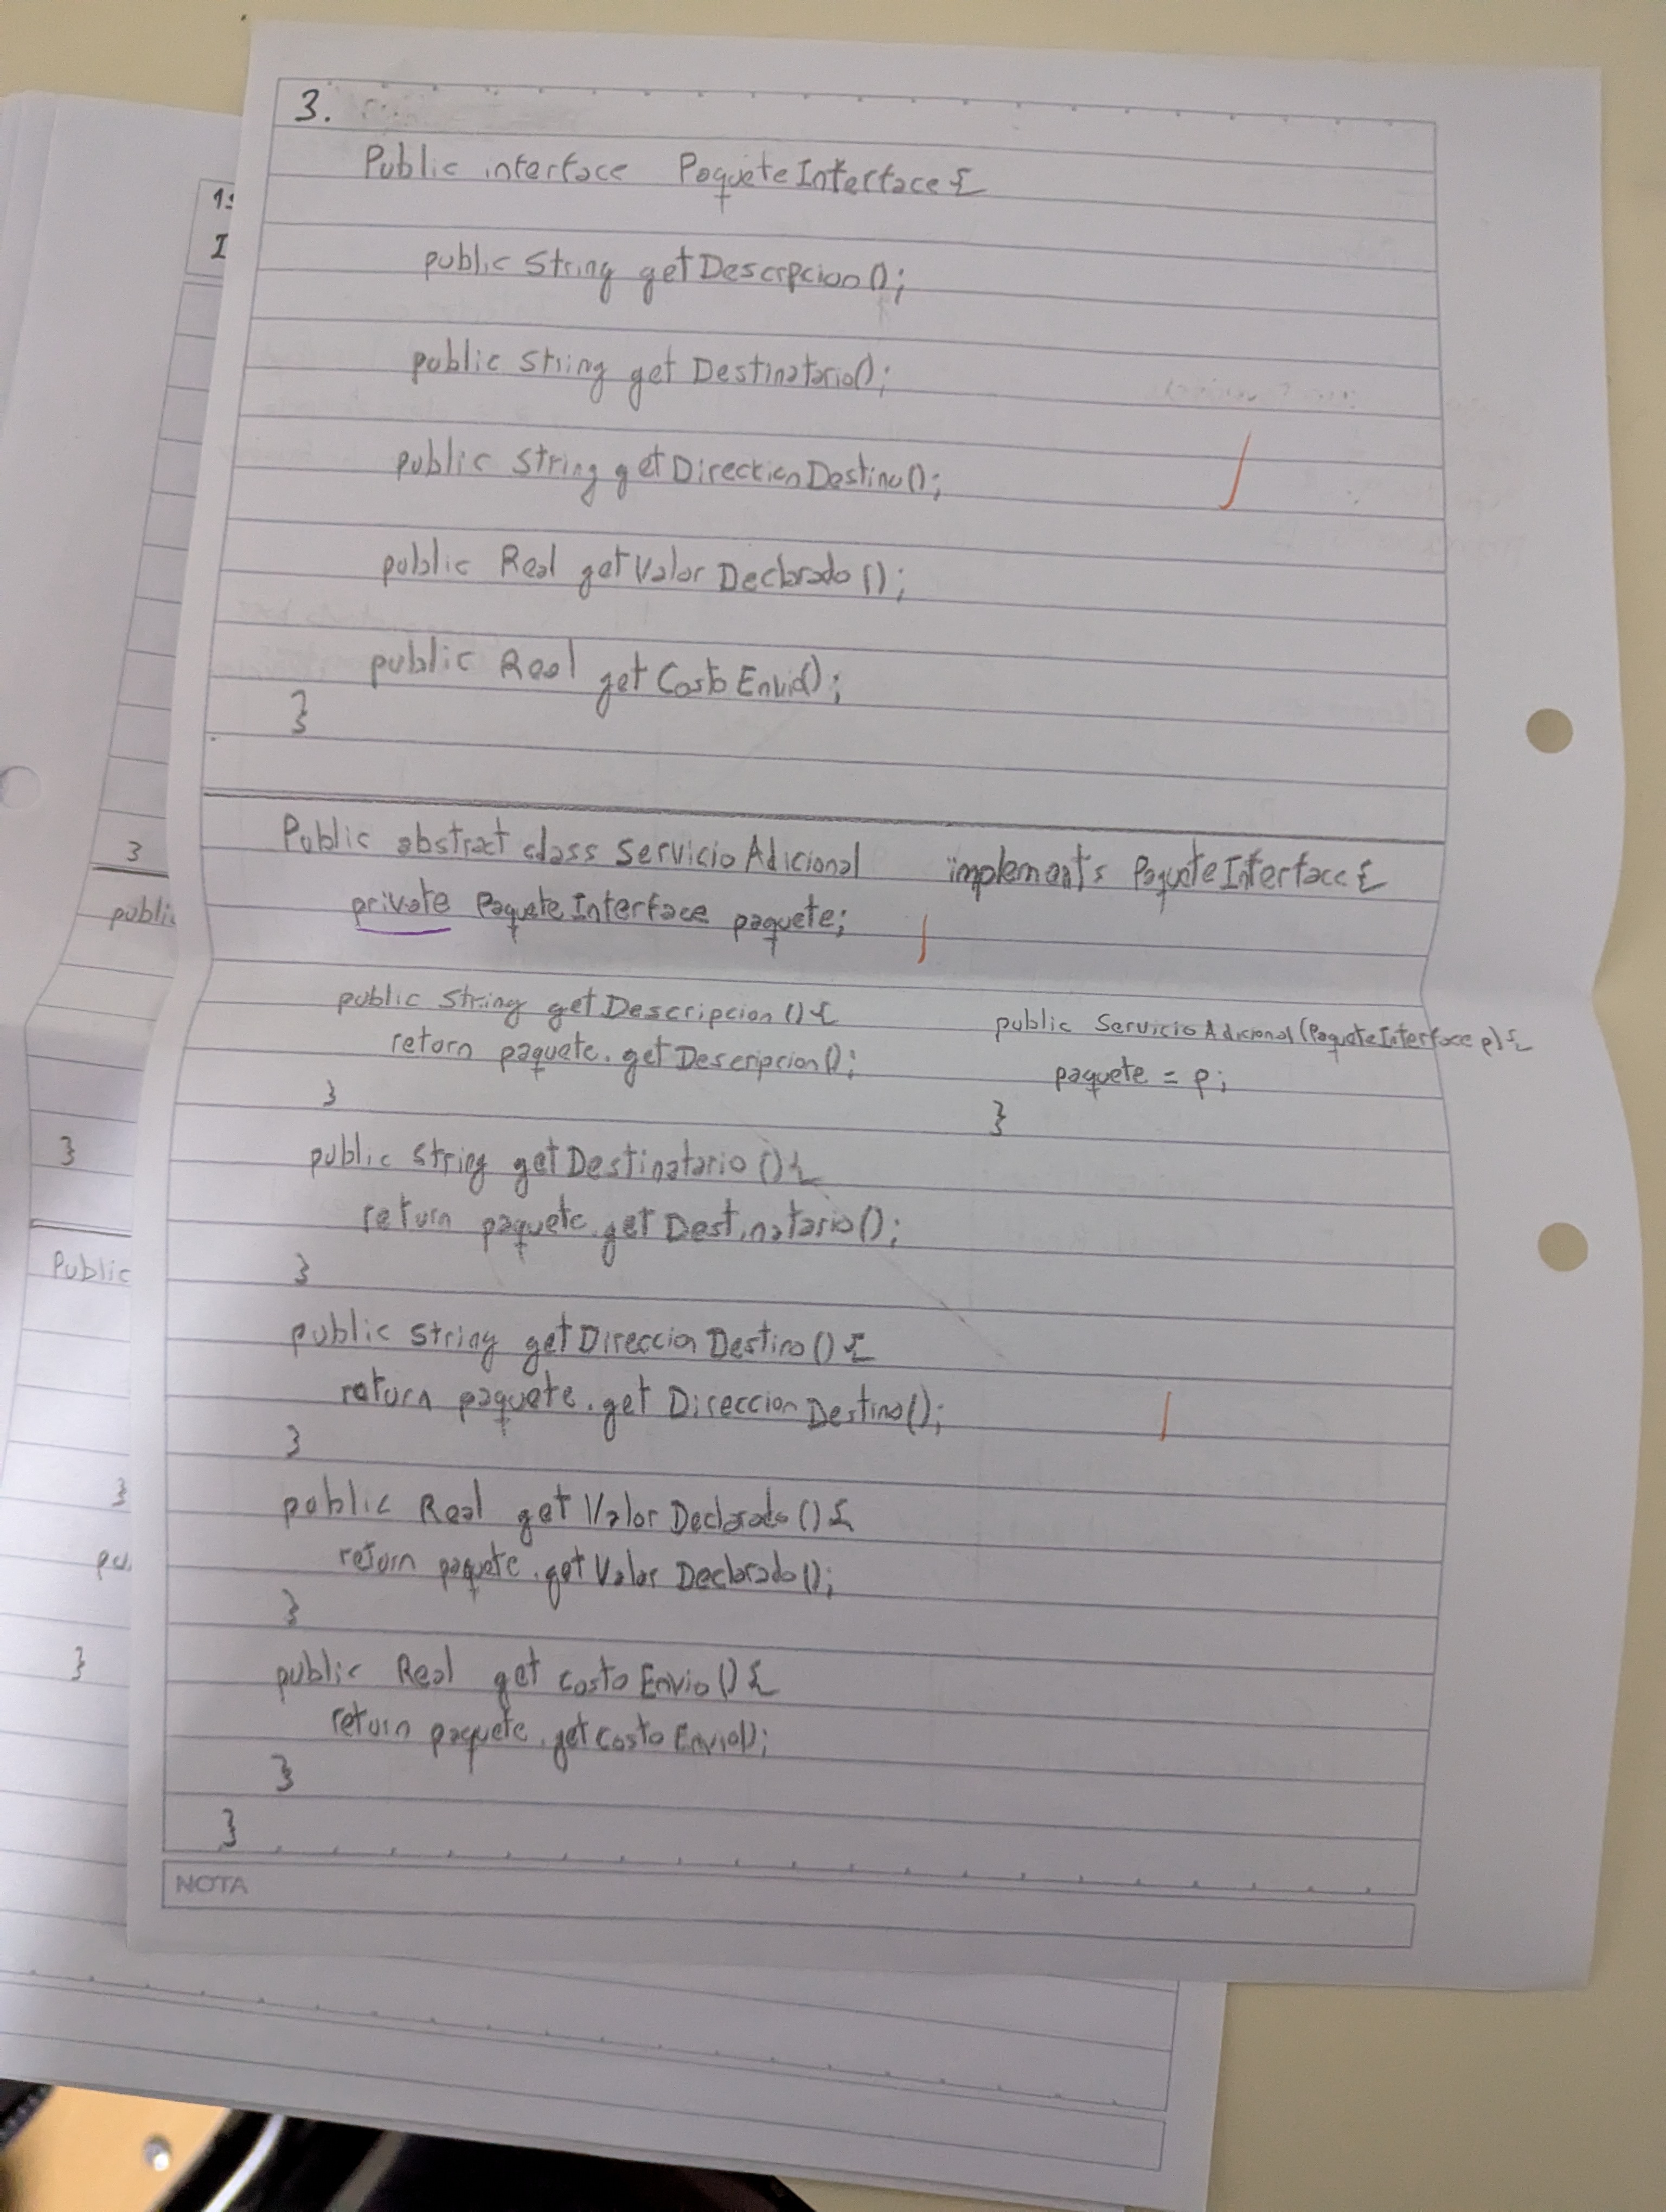 3.
Public interface PaqueteInterface {
public String getDescrpcion();
public String getDestinatario();
public String getDireccionDestino();
public Real getValorDeclarado();
public Real getCostoEnvio();
}
Public abstract class ServicioAdicional implements PaqueteInterface {
private PaqueteInterface paquete;
public String getDescripcion() {
return paquete.getDescripcion();
}
public ServicioAdicional(PaqueteInterface p) {
paquete = p;
}
public String getDestinatario() {
return paquete.getDestinatario();
}
public String getDireccionDestino() {
return paquete.getDireccionDestino();
}
public Real getValorDeclarado() {
return paquete.getValorDeclarado();
}
public Real getCostoEnvio() {
return paquete.getCostoEnvio();
}
}
NOTA
I
3
public
3
Public
}
}